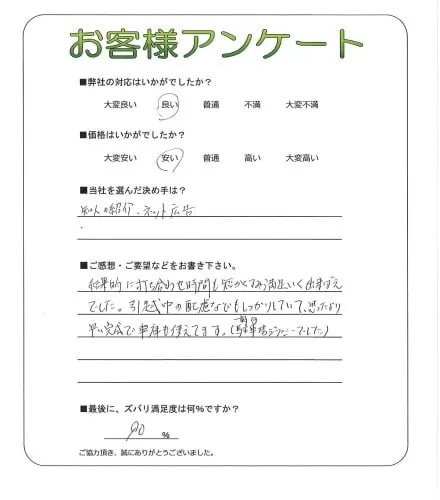 お客様アンケート
■弊社の対応はいかがでしたか?
大変良い 良い 普通 不満 大変不満
■価格はいかがでしたか?
大変安い 安い 普通 高い 大変高い
■当社を選んだ決め手は?
知人の紹介、ネット広告
■ご感想・ご要望などをお書き下さい。
結果的に打ち合わせ時間も短かくすみ満足いく出来ばえ
でした。引越し中の配慮などもしっかりしていて、思ったより
早い完成で車庫も使えてます。(駐車場 でした)
■最後に、ズバリ満足度は何%ですか?
90 %
ご協力頂き、誠にありがとうございました。